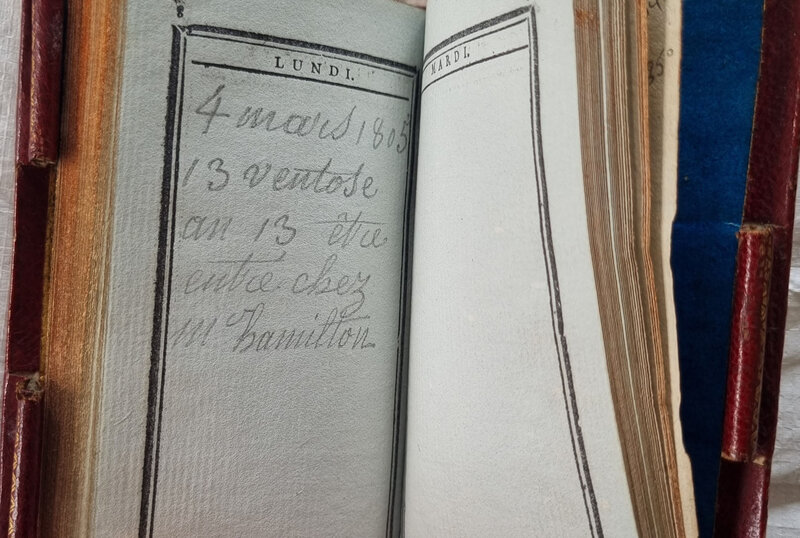 LUNDI.
4 mars 1805
13 ventose
an 13 être
entre chez
mr hamilton
MARDI.
35°